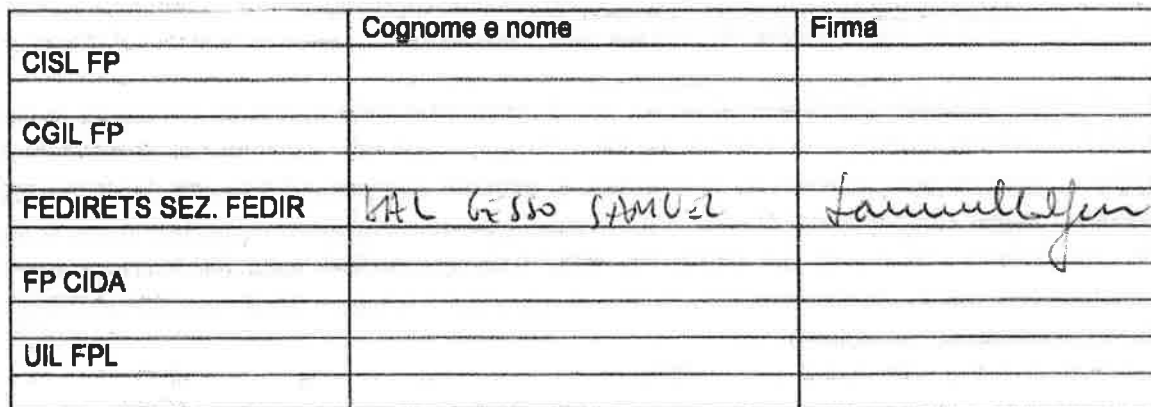 Cognome e nome Firma
CISL FP
CGIL FP
FEDIRETS SEZ. FEDIR DAL GESSO SAMUEL
FP CIDA
UIL FPL